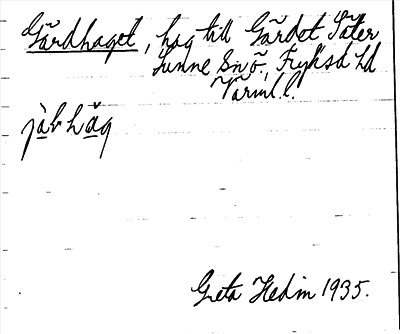 Gårdhaget, hag till Gårdet Säter
Sunne Snö, Fryksd hd
Värml. l.
Greta Hedin 1935.